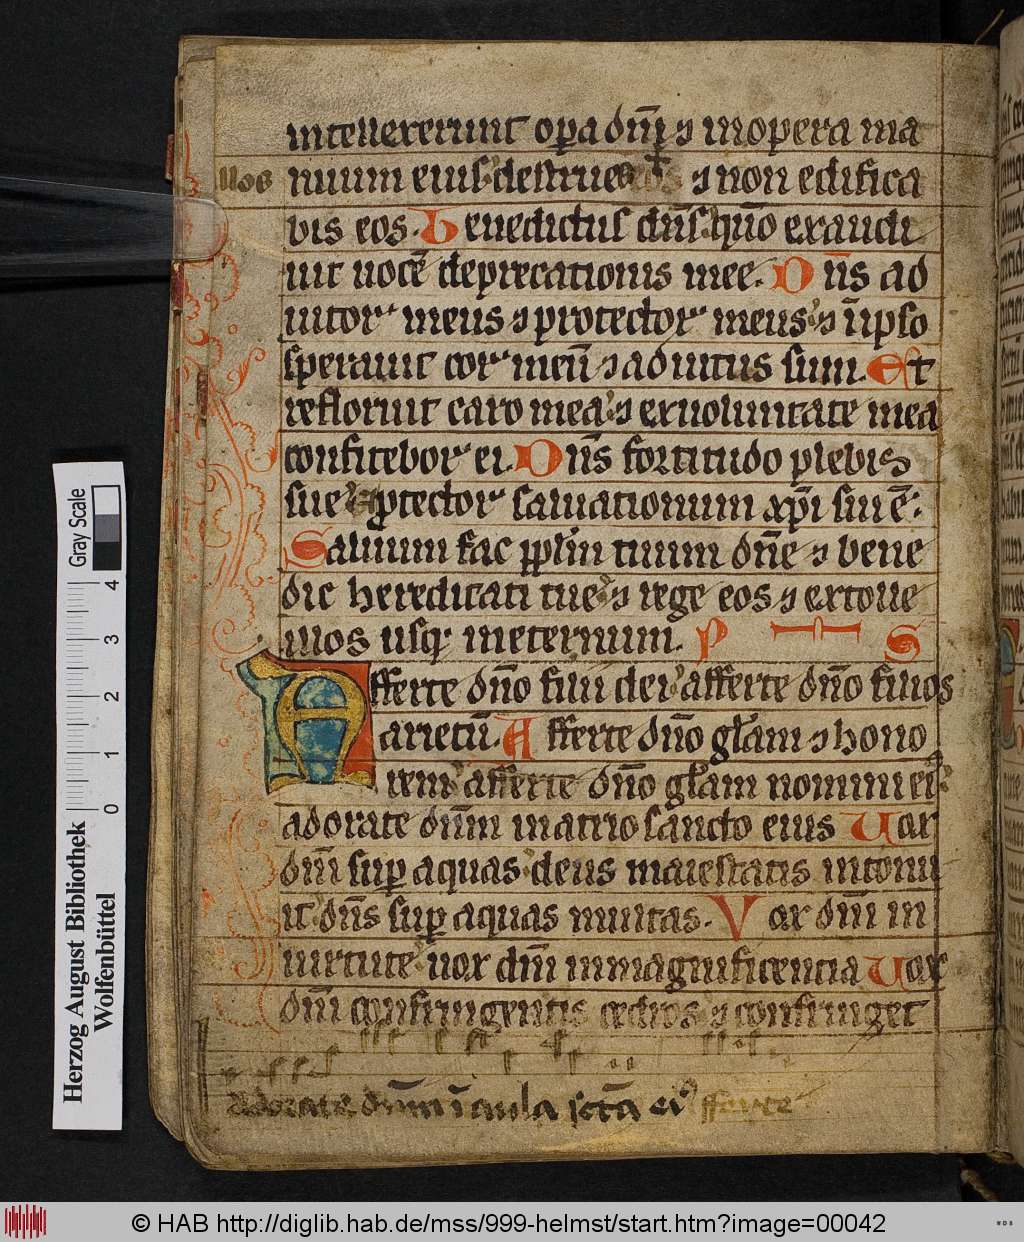 intellexerunt op̱a dn̄i ⁊ in opera ma
nuum eius destrue ⁊ non edifica
llos
bis eos. Benedictus dn̄s quō exaudi
uit uocē deprecationis mee. Dn̄s ad
iutor meus ⁊ protector meus ⁊ in ip̄o
sperauit cor meū ⁊ adiutus sum. Et
refloruit caro mea ⁊ ex uoluntate mea
confitebor ei. Dn̄s fortitudo plebis
sue ⁊ ꝓtector saluationum xp̄i sui ē.
Saluum fac pp̄lm tuum dn̄e ⁊ bene
dic hereditati tue ⁊ rege eos ⁊ extolle
illos usqꝫ in eternum. P S
Afferte dn̄o filii dei afferte dn̄o filios
arietū. Afferte dn̄o glām ⁊ hono
rem afferte dn̄o glām nomini eiꝰ
adorate dn̄m in atrio sancto eius Uox
dn̄i suꝑ aquas deus maiestatis intonu
it dn̄s suꝑ aquas multas. Vox dn̄i in
uirtute uox dn̄i in magnificencia Uox
dn̄i confringentis cedros ⁊ confringet
Adorate dn̄m ī aula sctā eiꝰ fferte
Herzog August Bibliothek
Wolfenbüttel
Gray Scale
0 1 2 3 4
© HAB http://diglib.hab.de/mss/999-helmst/start.htm?image=00042